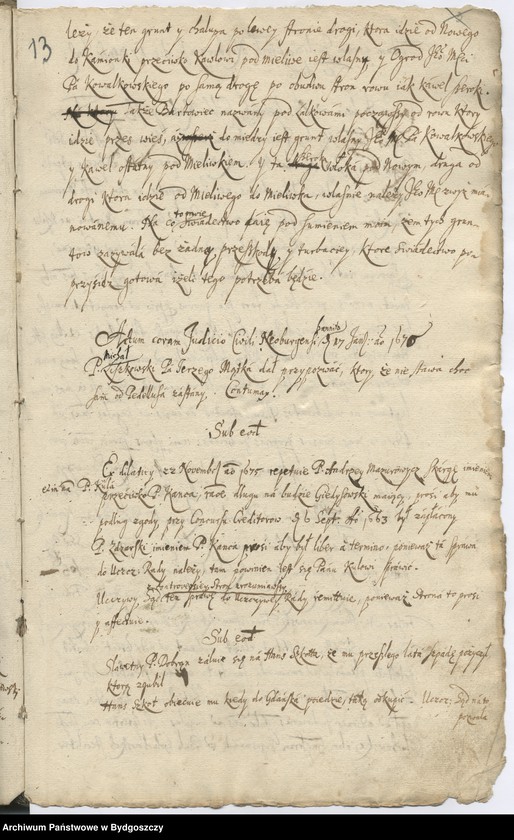 13
leży, że ten grunt y chałupa po lewey stronie drogi, ktora idzie od Nowego
do Kamionki przeciwko Kawlowi, pod Mieliwe iest własny y Ogrod Jeo Mści
Pa Kowalkowskiego po samą drogę po obudwu stron rowu iak Kaweł szeroki.
także Bartłowiec nazwany, pod Łąkowami począwszy od rowu ktory
idzie przes wieś, do miedzy iest grunt własny Jeo Mści Pa Kowalkowskiego
y Kaweł ostatny pod Mieliwskiem. y ta włoka pod Nowym, druga od
drogi ktora idzie od Mieliwego do Mieliwka, własnie należy Jeo Mści zwysz mia-
nowanemu. Na co swiadectwo daię pod sumieniem moim, żem tych grun-
tow zażywała bez żadney przeszkody, y turbaciey, ktore swiadectwo po-
przysiądz gotowa ieżeli tego potrzeba będzie.
Actum coram Judicio Civili Neoburgensi, bannito d 17 Janu: ao 1676
Michał
P. Pa Jerzego Mogka dał przypozwać, ktory że nie stawa choc
sam od Pedellusa zastany. Contumax.
Sub eod
Ex dilatione 22 Novembr ao 1675 repetuie P. Andrzey Mazurowycz skargę imieniem
P. Kula
przeciwko P. Kanca, race długu na budzie Giedysowski maiący, prosi aby mu
podług zgody, przy Concursie Creditorow d 6 Sept. Ao 1663 był zapłacony
P. Zdzorski imieniem P. Kanca prosi aby był liber a termino, ponieważ ta sprawa
do Uczcz: Rady należy, tam powinien iest się Panu Kulowi sprawic.
Uczciwy Sąd tę sprawę do Uczciwey Rady remittuie, ponieważ strona to prosi
y affectuie.
Sub eod
Sławetny P. Dobryn żaluie się na Hans Szkota, że mu przeszłego lata szpadę pożyczył
ktorą zgubił
Hans Szkot obiecuie mu kiedy do Gdańska poiedzie, takę odkupic - Uczcz: Sąd na to
pozwala
Archiwum Państwowe w Bydgoszczy